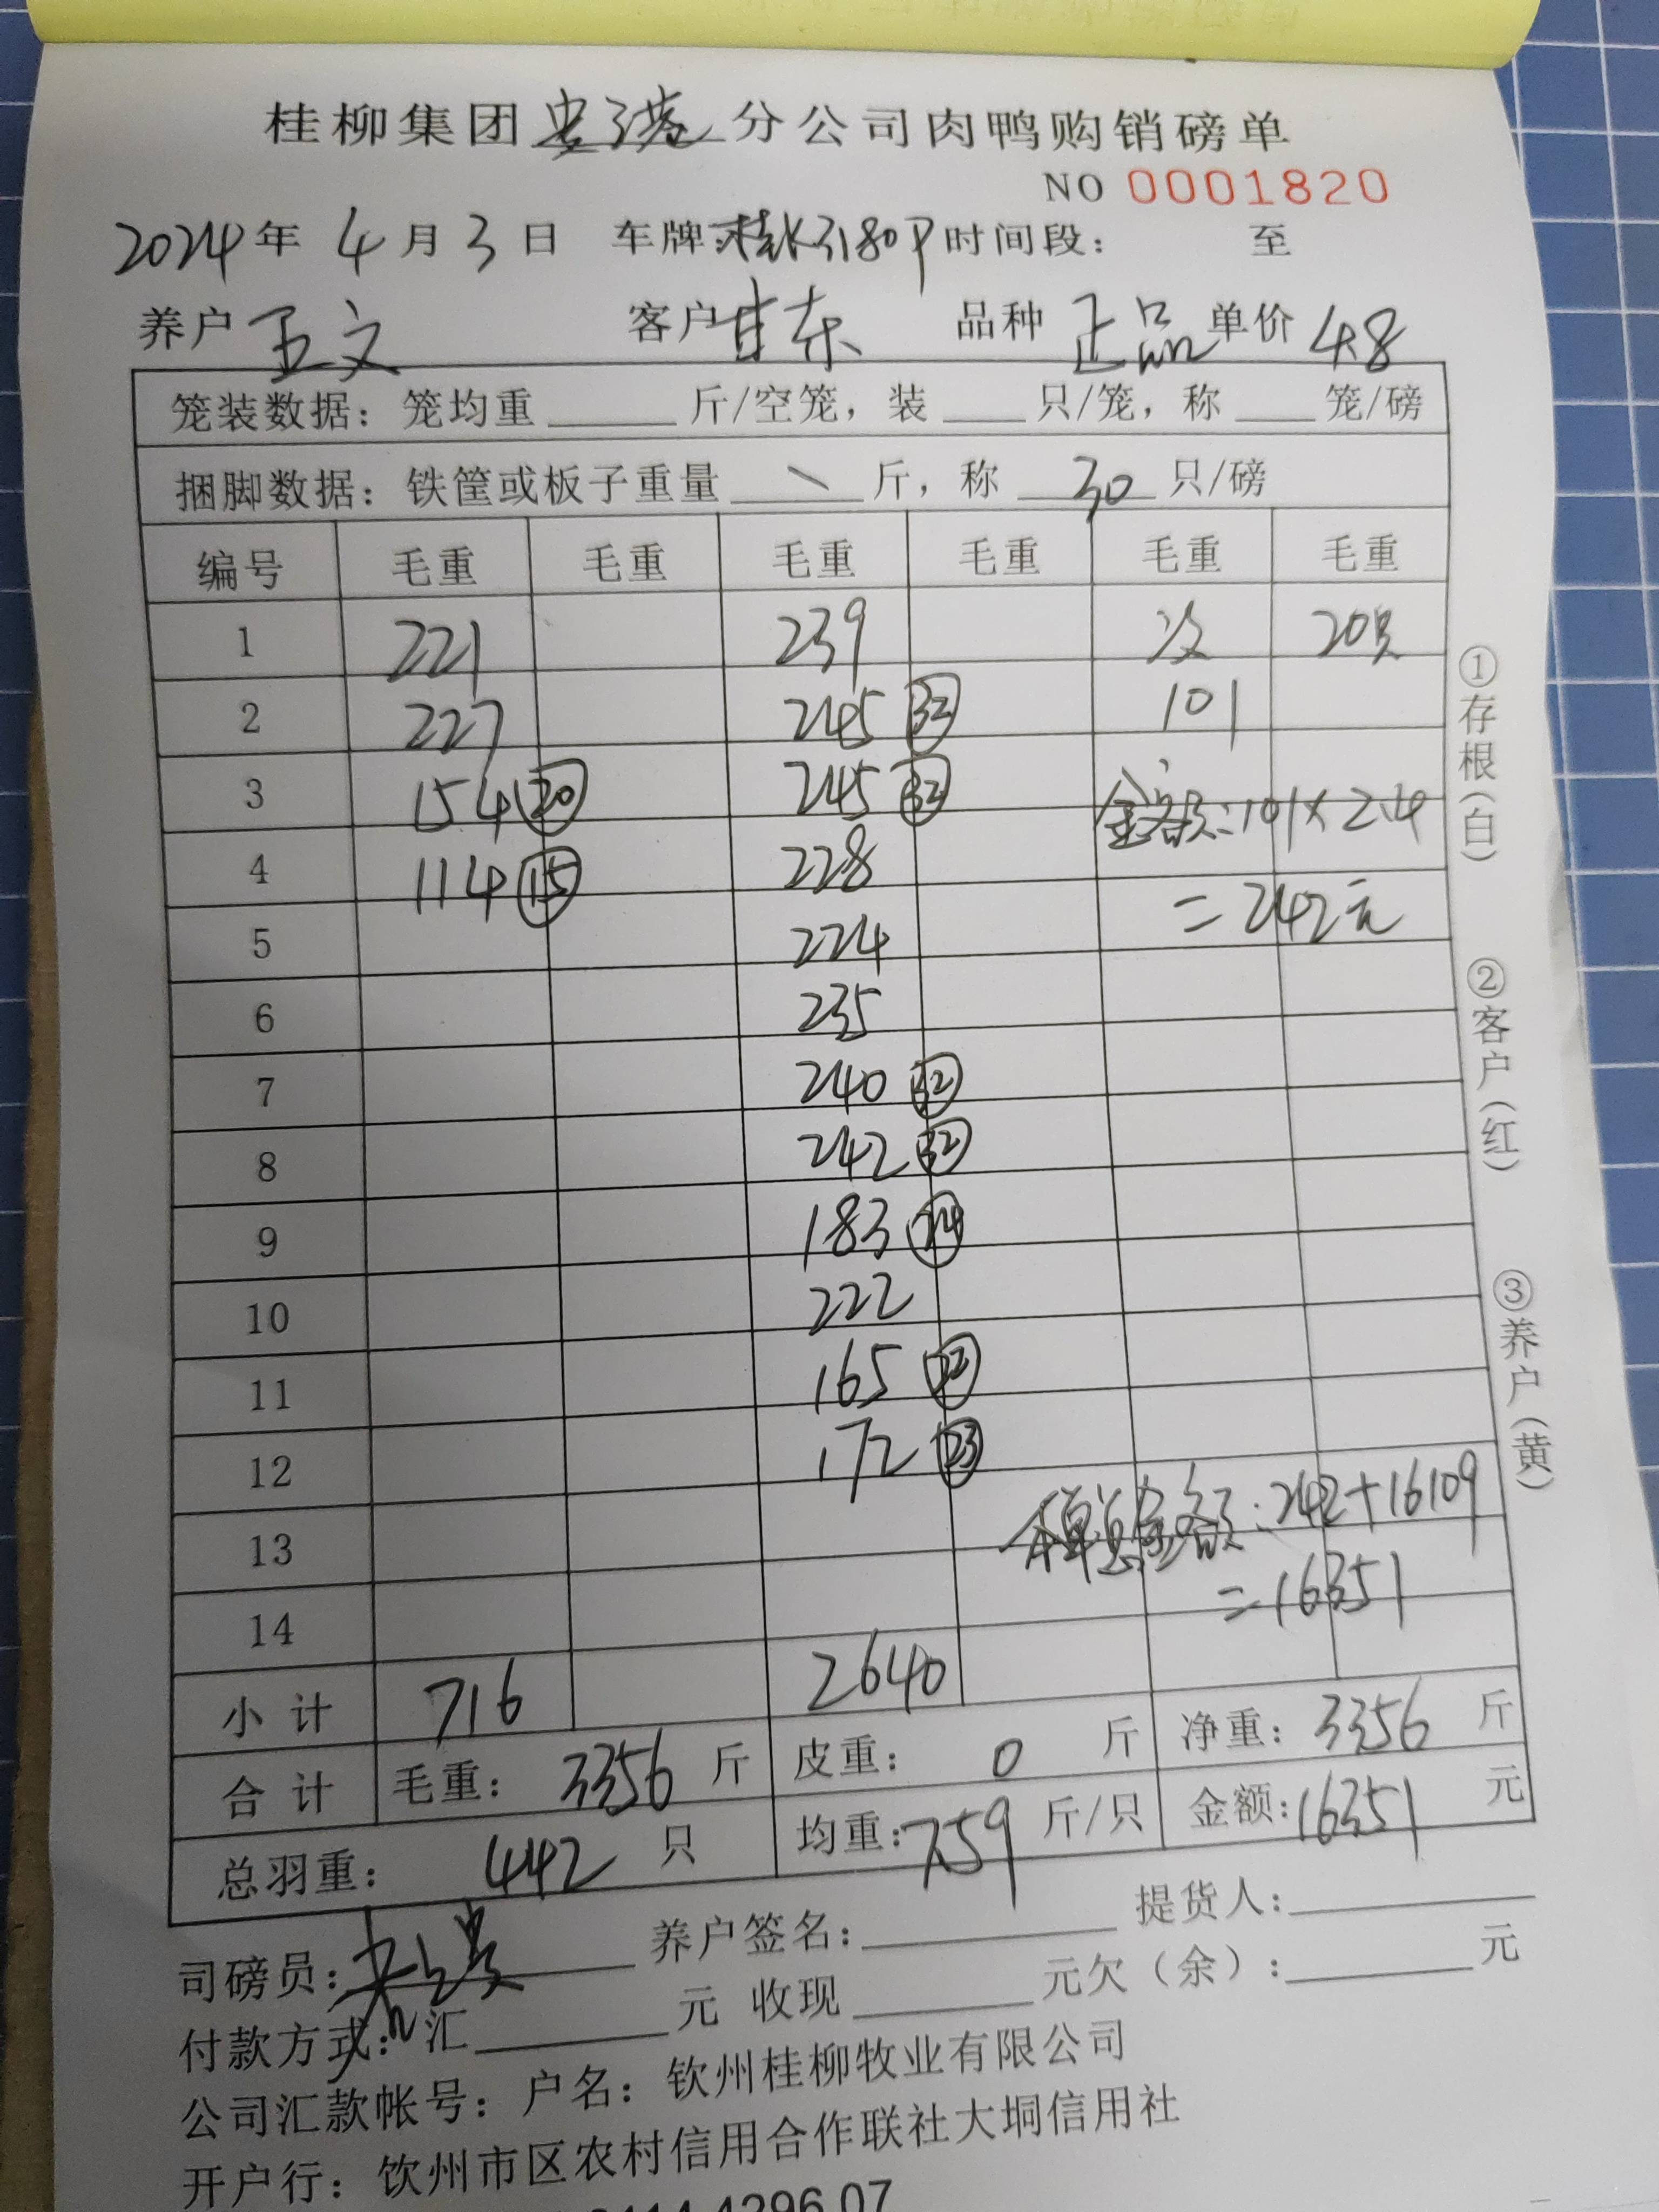 桂柳集团贵港分公司肉鸭购销磅单
NO 0001820
2024年 4月 3日 车牌:桂K3180P 时间段: 至
养户 王文 客户 甘东 品种 正品 单价 4.8
笼装数据: 笼均重 斤/空笼, 装 只/笼, 称 笼/磅
捆脚数据: 铁筐或板子重量 \ 斤, 称 30 只/磅
编号 毛重 毛重 毛重 毛重 毛重 毛重
1 221 239 次 20只
2 227 245 32 101
3 154 20 245 32 金额:101×2.4
4 114 15 228 =242元
5 224
6 235
7 240 32
8 242 32
9 183 24
10 222
11 165 22
12 172 23
本单总金额:242+16109
13 =16351
14
小计 716 2640
合计 毛重: 3356 斤 皮重: 0 斤 净重: 3356 斤
总羽重: 442 只 均重:7.59 斤/只 金额:16351 元
司磅员: 养户签名: 提货人:
付款方式: 汇 元 收现 元欠(余): 元
公司汇款帐号: 户名: 钦州桂柳牧业有限公司
开户行: 钦州市区农村信用合作联社大垌信用社
4296 07
①存根(白)
②客户(红)
③养户(黄)